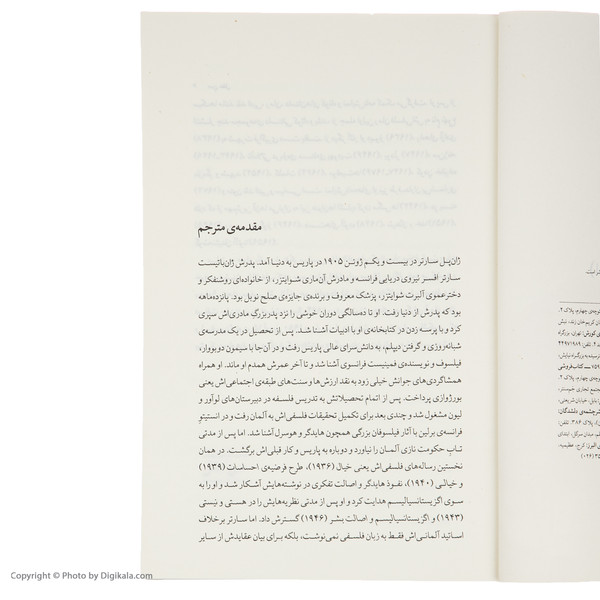 مقدمه‌ی مترجم
ژان‌پل سارتر در بیست و یکم ژوئن ۱۹۰۵ در پاریس به دنیا آمد. پدرش ژان‌باتیست
سارتر افسر نیروی دریایی فرانسه و مادرش آن‌ماری شوایتزر، از خانواده‌ای روشنفکر و
دخترعموی آلبرت شوایتزر، پزشک معروف و برنده‌ی جایزه‌ی صلح نوبل بود. پانزده‌ماهه
بود که پدرش از دنیا رفت. او تا ده‌سالگی دوران خوشی را نزد پدربزرگ مادری‌اش سپری
کرد و با پرسه زدن در کتابخانه‌ی او با ادبیات آشنا شد. پس از تحصیل در یک مدرسه‌ی
شبانه‌روزی و گرفتن دیپلم، به دانش‌سرای عالی پاریس رفت و در آن‌جا با سیمون دوبووار،
فیلسوف و نویسنده‌ی فمینیست فرانسوی آشنا شد و تا آخر عمرش همدم او ماند. او همراه
همشاگردی‌های جوانش خیلی زود به نقد ارزش‌ها و سنت‌های طبقه‌ی اجتماعی‌اش یعنی
بورژوازی پرداخت. پس از اتمام تحصیلاتش به تدریس فلسفه در دبیرستان‌های لوآور و
لیون مشغول شد و چندی بعد برای تکمیل تحقیقات فلسفی‌اش به آلمان رفت و در انستیتو
فرانسه‌ی برلین با آثار فیلسوفان بزرگی همچون هایدگر و هوسرل آشنا شد. اما پس از مدتی
تاب حکومت نازی آلمان را نیاورد و دوباره به پاریس و کار قبلی‌اش برگشت. در همان
نخستین رساله‌های فلسفی‌اش یعنی خیال (۱۹۳۶)، طرح فرضیه‌ی احساسات (۱۹۳۹)
و خیالی (۱۹۴۰)، نفوذ هایدگر و اصالت تفکری در نوشته‌هایش آشکار شد و او را به
سوی اگزیستانسیالیسم هدایت کرد و او پس از مدتی نظریه‌هایش را در هستی و نیستی
(۱۹۴۳) و اگزیستانسیالیسم و اصالت بشر (۱۹۴۶) گسترش داد. اما سارتر برخلاف
اساتید آلمانی‌اش فقط به زبان فلسفی نمی‌نوشت، بلکه برای بیان عقایدش از سایر
Copyright © Photo by Digikala.com